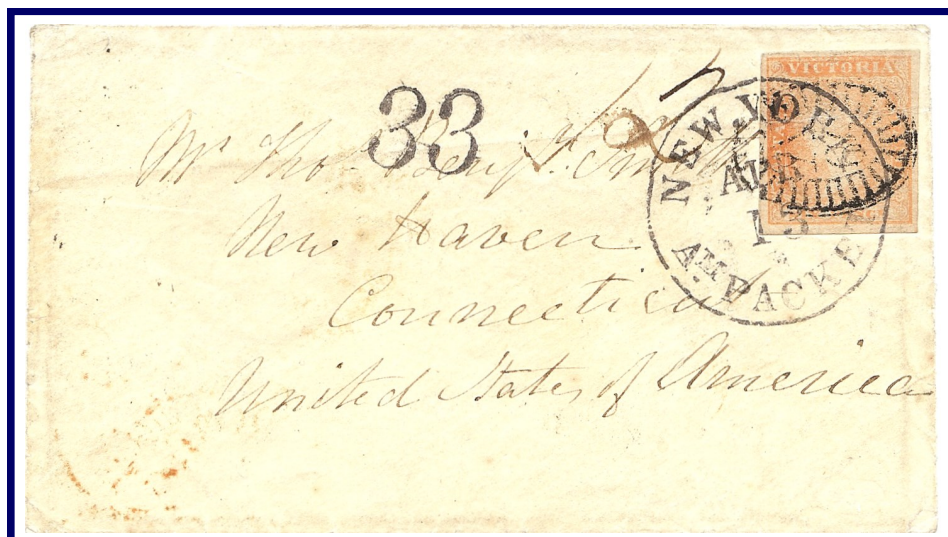 VICTORIA
33
NEW YORK
AM. PACKET
13
Mr Thos Benj. Smith
New Haven
Connecticut
United States of America